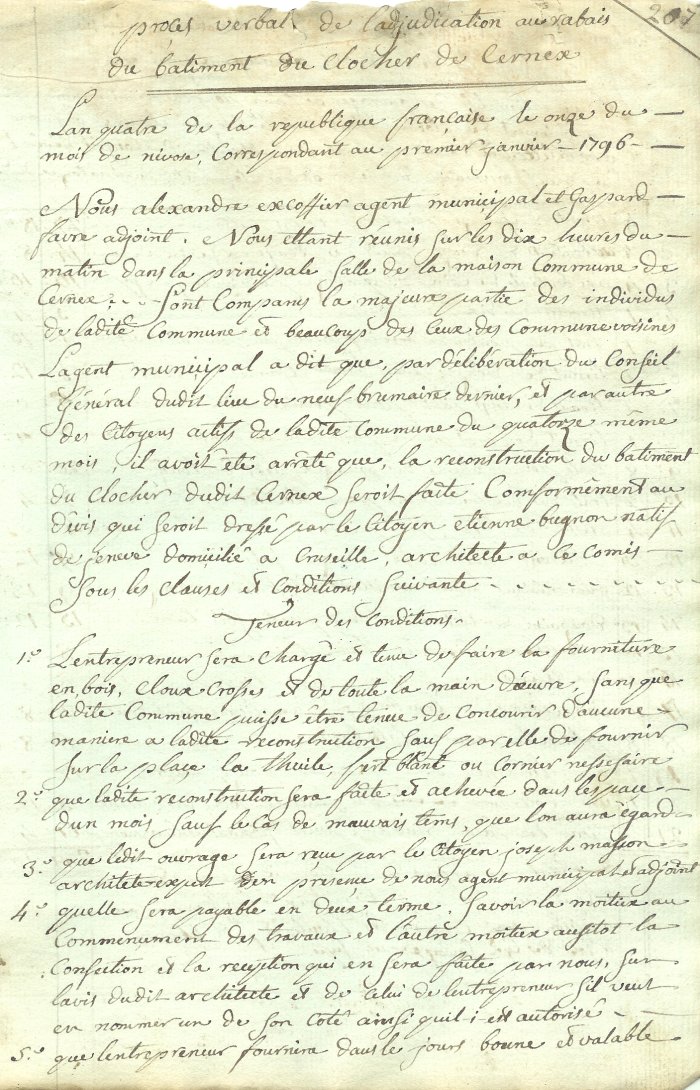 207
procès verbal de ladjudication au rabais
du batiment du Clocher de Cernex
Lan quatre de la republique française le onze du —
mois de nivose, Correspondant au premier janvier — 1796 — —
Nous alexandre excoffier agent municipal et Gaspard —
favre adjoint. Nous etant réunis sur les dix heures du —
matin dans la principale Salle de la maison Commune de
Cernex ; . . . Sont Comparus la majeure partie des individus
de ladite Commune et beaucoup des Ceux des Commune voisines
Lagent municipal a dit que, par délibération du Conseil
Général dudit lieu du neuf brumaire dernier, et par autre
des Citoyens actifs de ladite Commune du quatorze même
mois, il avoit été arrêté que, la reconstruction du batiment
du Clocher dudit Cernex seroit faite Comformèment au
dévis qui seroit dressé par le Citoyen etienne bugnon natif
de geneve domicilié a Cruseille, architecte a Ce Comis —
Sous les Clauses et Conditions Suivante - . . . . . . .
Teneur des Conditions.
1.º Lentrepreneur sera Chargé et tenu de faire la fourniture
en bois, Cloux Crosses et de toute la main dœuvre, Sans que
ladite Commune puisse être tenue de Concourir daucune —
maniere a ladite reconstruction Sauf par elle de fournir
Sur la place la thuile, fert blanc ou Cornier nessesaire
2.º que ladite reconstruction sera faite et achevée dans lespace —
dun mois Sauf le Cas de mauvais tems, que lon aura égard -
3.º que ledit ouvrage Sera reçu par le Citoyen joseph masson
architecte expert en présence de nous agent municipal et adjoint
4.º quelle sera payable en deux terme, Savoir la moitiex au
Commencement des travaux et lautre moitiex aussitot la
Confection et la reception qui en Sera faite par nous, Sur
lavis dudit architecte et de Celui de lentrepreneur Sil veut
en nommer un de Son Coté ainsi quil i est autorisé - —
5.º que lentrepreneur fournira dans le jours bonne et valable